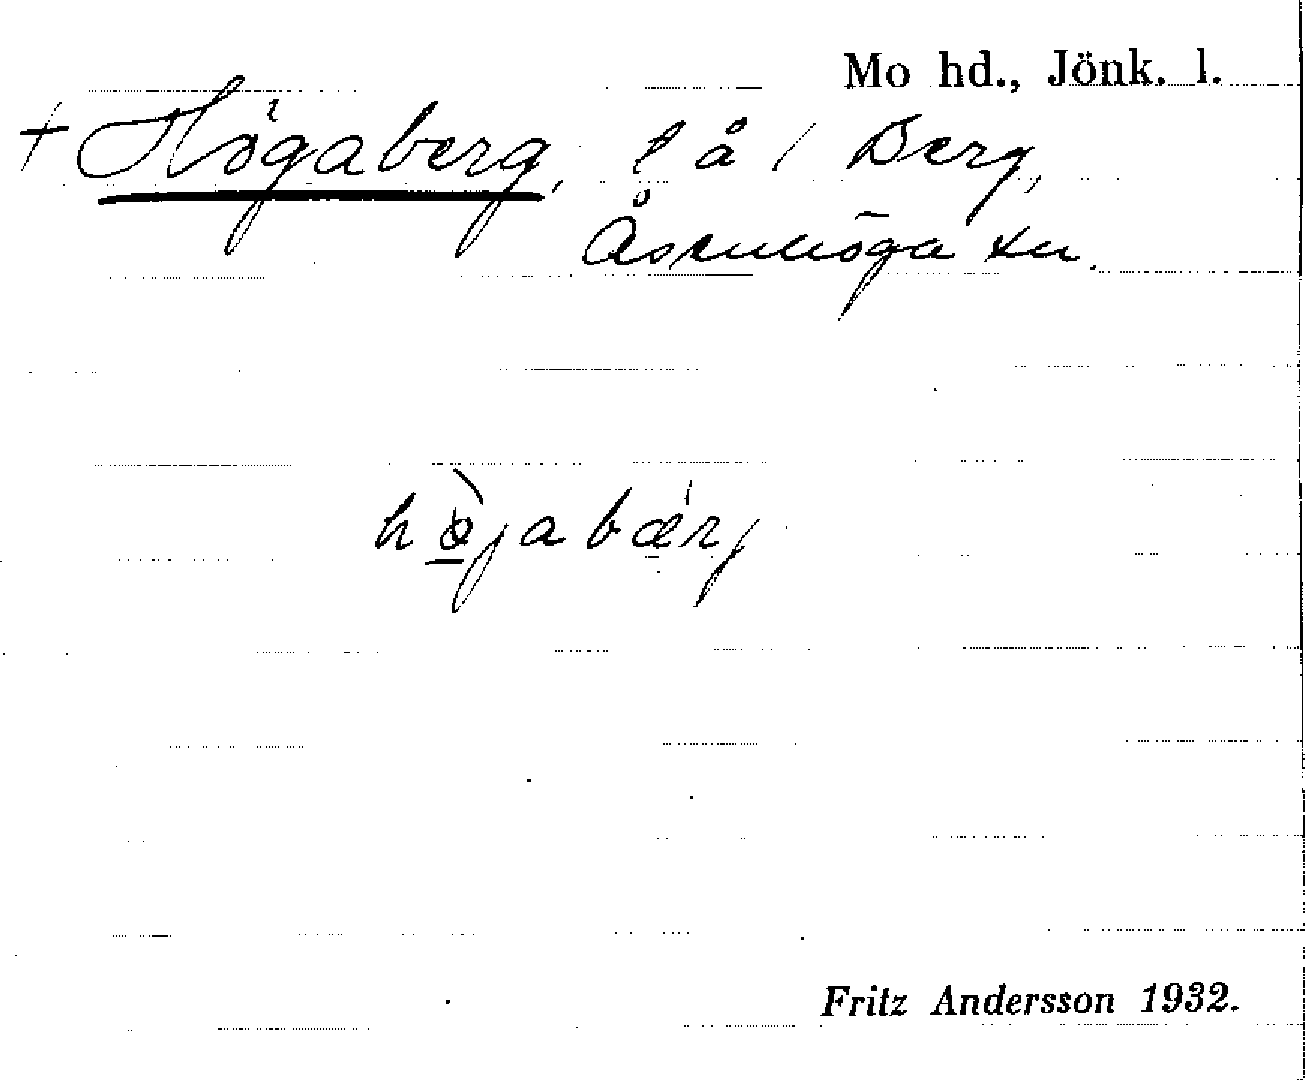 Mo hd., Jönk. l.
† Högaberg, l å / Berg,
Åsenhöga sn.
hø̀jabærj
Fritz Andersson 1932.